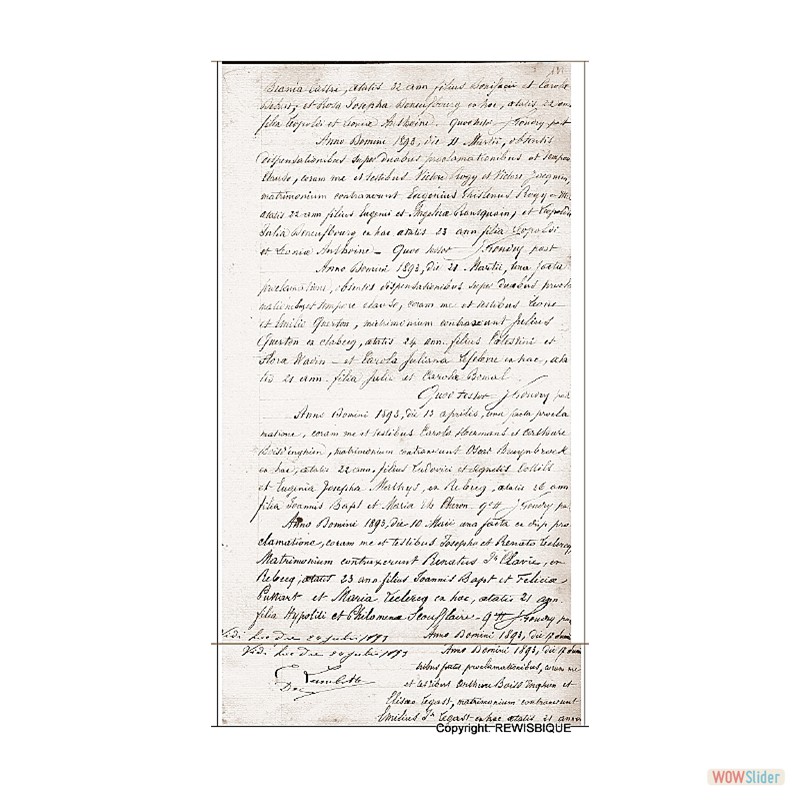 ætatis 22 ann filius Bonifacii et Carola
et Rosa Josepha Woneufbourg ex hac, ætatis 22 ann
filia Leopoldi et Leoniæ Anthoine. Quod testor J. Goudry past
Anno Domini 1893, die 11 Martii, obtentis
dispensationibus super duabus proclamationibus et tempore
clauso, coram me et testibus Victore Rogy et Victore Jacqmin,
matrimonium contraxerunt Eugenius Ghislenus Rogy ex
ætatis 22 ann filius Eugenii et Angelica et Leopoldin
Julia Woneufbourg ex hac ætatis 23 ann filia Leopoldi
et Leoniæ Anthoine - Quod testor J. Goudry past
Anno Domini 1893, die 21 Martii, una facta
proclamatione, obtentis dispensationibus super duabus procla
mationibus et tempore clauso, coram me et testibus Leone
et Emilio Querton, matrimonium contraxerunt Julius
Querton ex clabecq, ætatis 24 ann. filius Celestini et
Flora Wacin - et Carola Juliana Lefebvre ex hac, æta
tis 21 ann. filia Julii et Carola Bomal.
Quod testor J. Goudry past
Anno Domini 1893, die 13 aprilis, una facta procla
matione, coram me et testibus Carolo Hoermans et Arthure
matrimonium contraxerunt Oscar Bruynbroeck
ex hac, ætatis 22 ann, filius Ludovici et Agnetis
et Eugenia Josepha Matthys, ex Rebecq, ætatis 26 ann
filia Joannis Bapt et Maria Th. J. Goudry past
Anno Domini 1893, die 10 Maii una facta ex disp pro
clamatione, coram me et testibus Josepho et Renato Leclercq,
Matrimonium contraxerunt Renatus Jh Clavie, ex
Rebecq, ætatis 23 ann filius Joannis Bapt et Felicia
et Maria Leclercq ex hac, ætatis 21 ann.
filia Hypoliti et Philomena Scoufflaire - J. Goudry past
Vidi hac die 20 Julii 1893 Anno Domini 1893, die 17 Junii
Vidi hac die 20 Julii 1893 Anno Domini 1893, die 17 Junii
tribus factis proclamationibus, coram me
et testibus Arthure et
Eliseo Legast, matrimonium contraxerunt
Emilius Jh Legast ex hac ætatis 21 annis
Copyright: REWISBIQUE
WOWSlider